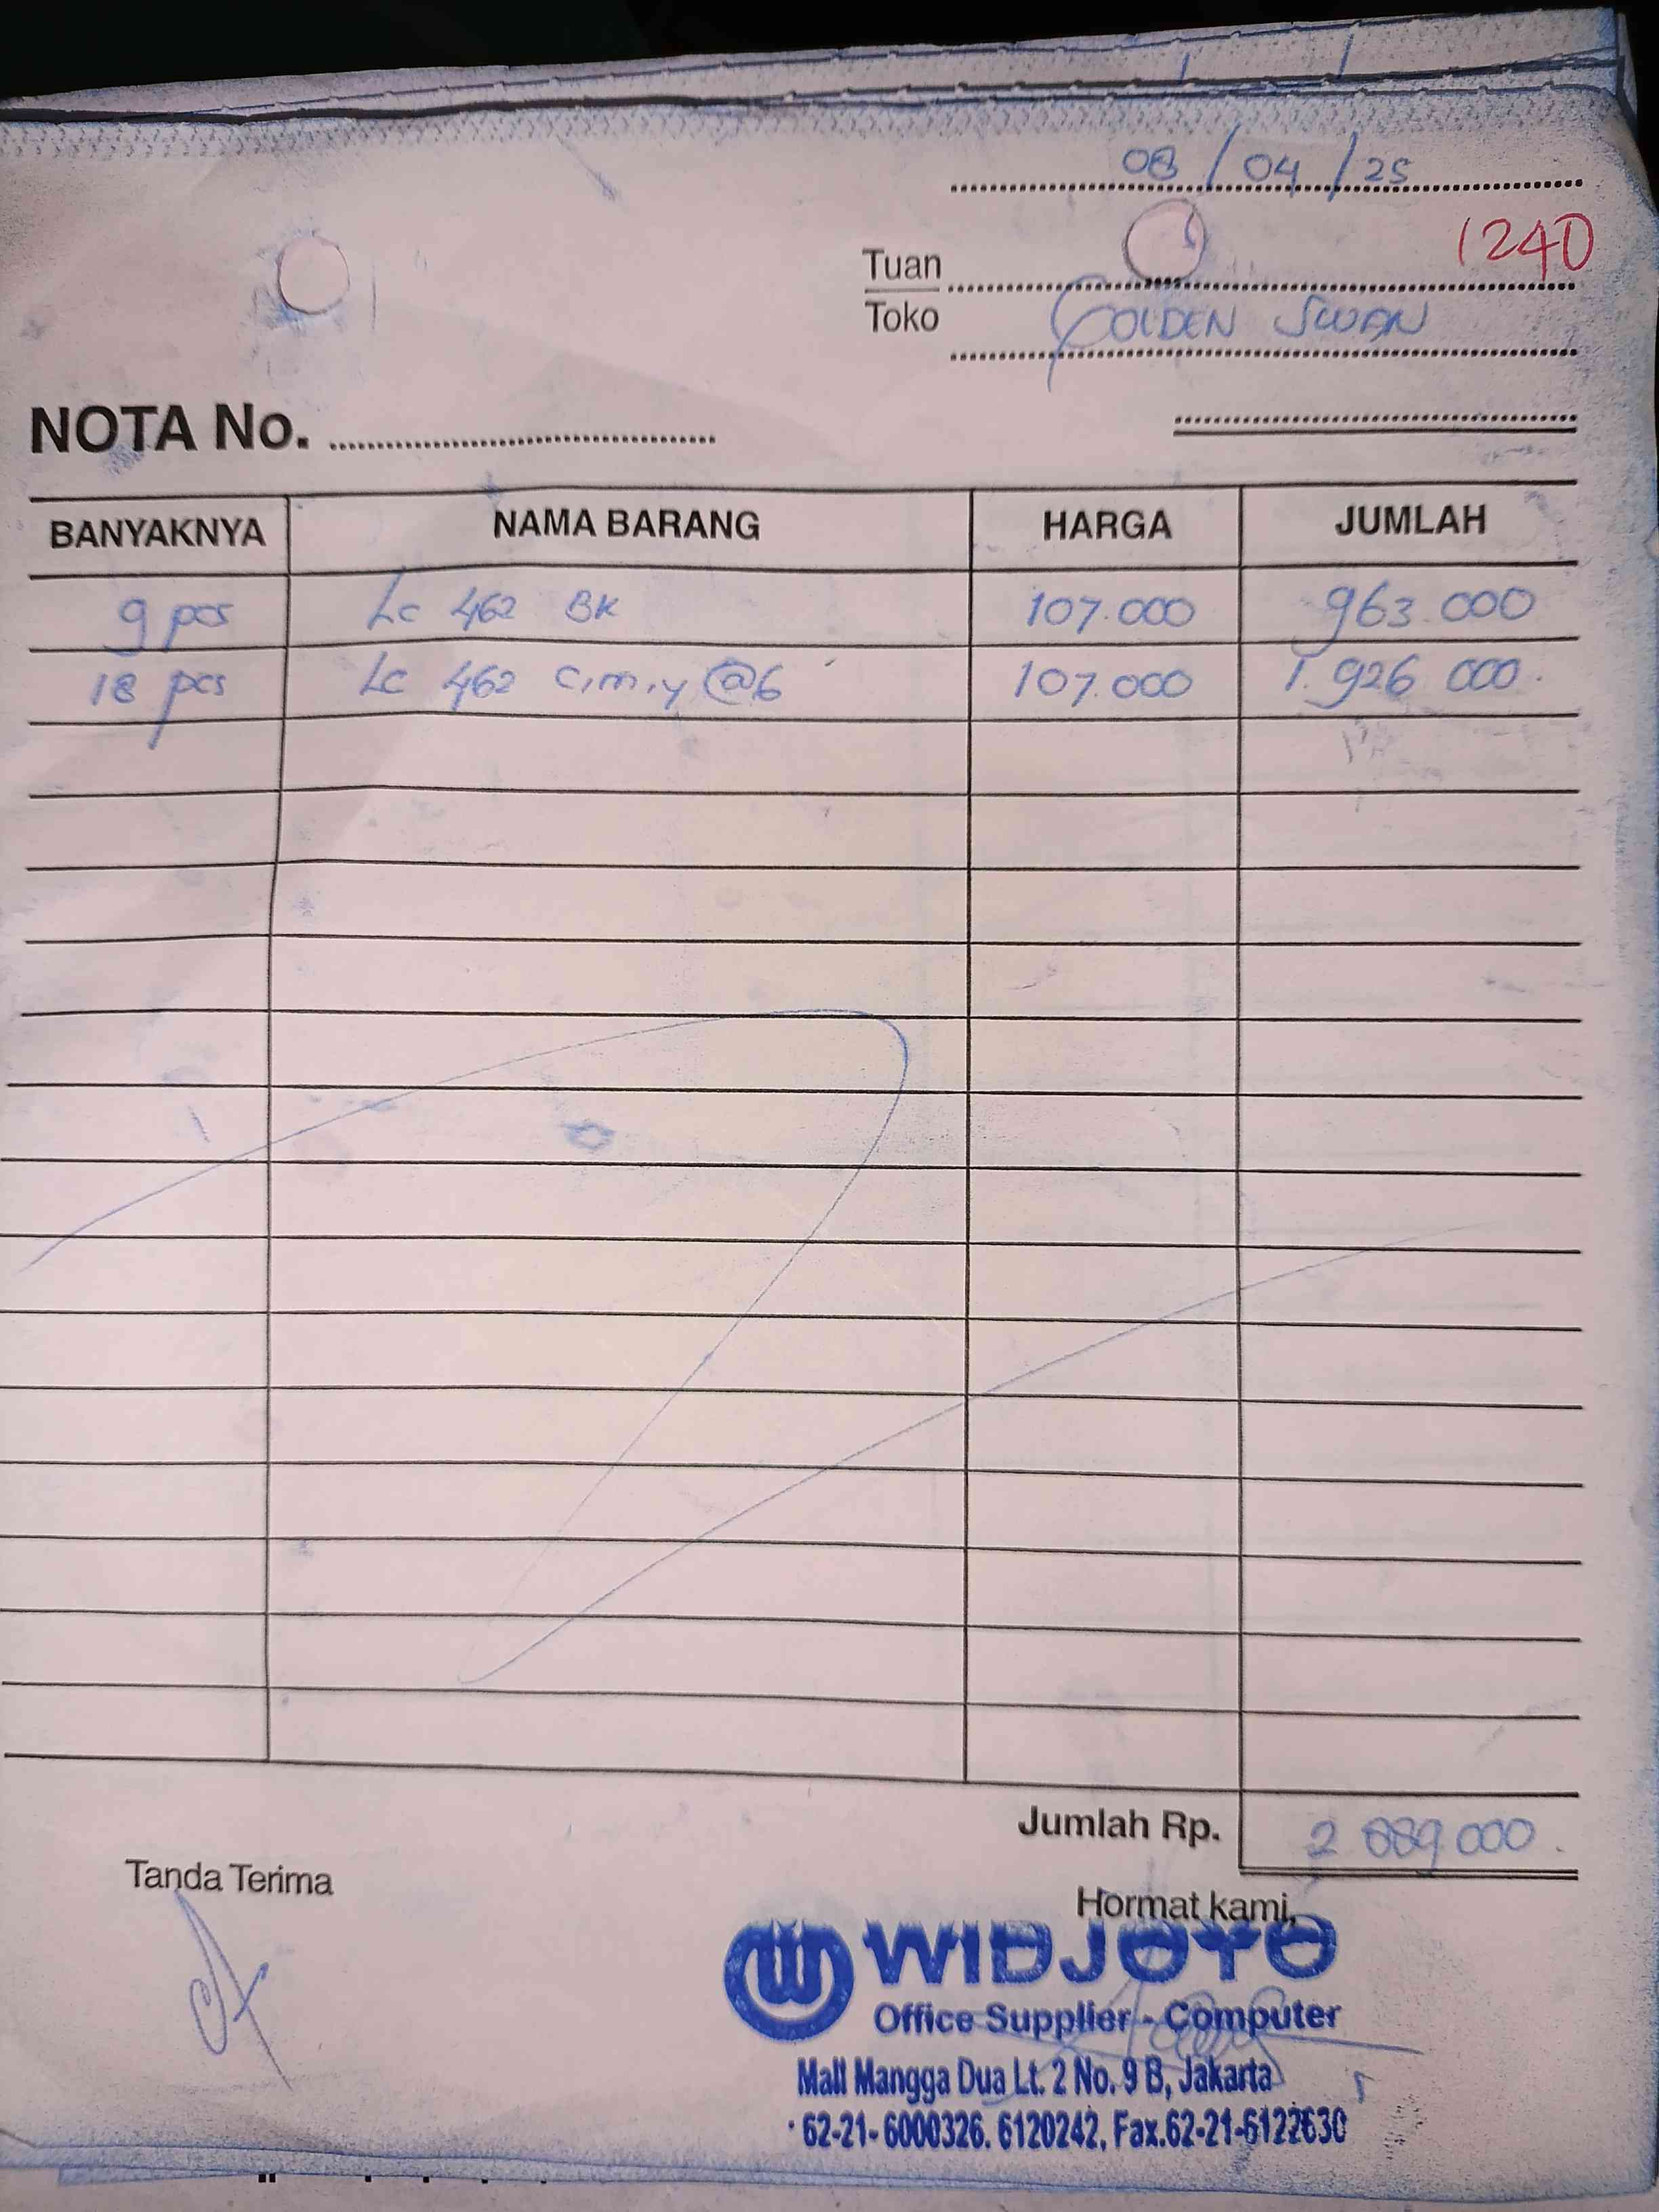 08/04/25
1240
Tuan
Toko GOLDEN SWAN
NOTA No.
BANYAKNYA NAMA BARANG HARGA JUMLAH
9 pcs Lc 462 BK 107.000 963.000
18 pcs Lc 462 C,m,y @6 107.000 1.926 000.
Jumlah Rp. 2 889.000.
Tanda Terima
Hormat kami,
WIDJOYO
Office Supplier - Computer
Mall Mangga Dua Lt. 2 No. 9 B, Jakarta
62-21-6000326. 6120242, Fax.62-21-6122630